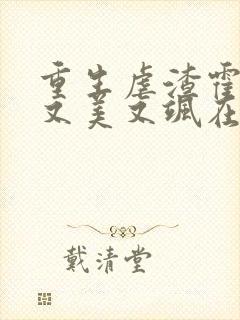 重生虐渣霍
又美又飒在
戴清堂